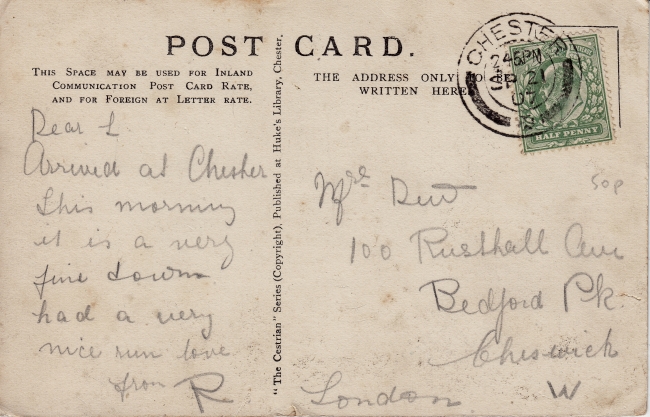 POST CARD.
THIS SPACE MAY BE USED FOR INLAND
COMMUNICATION POST CARD RATE,
AND FOR FOREIGN AT LETTER RATE.
THE ADDRESS ONLY TO BE
WRITTEN HERE
"The Cestrian" Series (Copyright), Published at Huke's Library, Chester.
CHESTER
2 45 PM
21
HALF PENNY
50p
Dear L
Arrived at Chester
this morning
it is a very
fine town
had a very
nice run love
from R
Mrs
100 Rusthall Ave
Bedford Pk.
Chiswick
London W